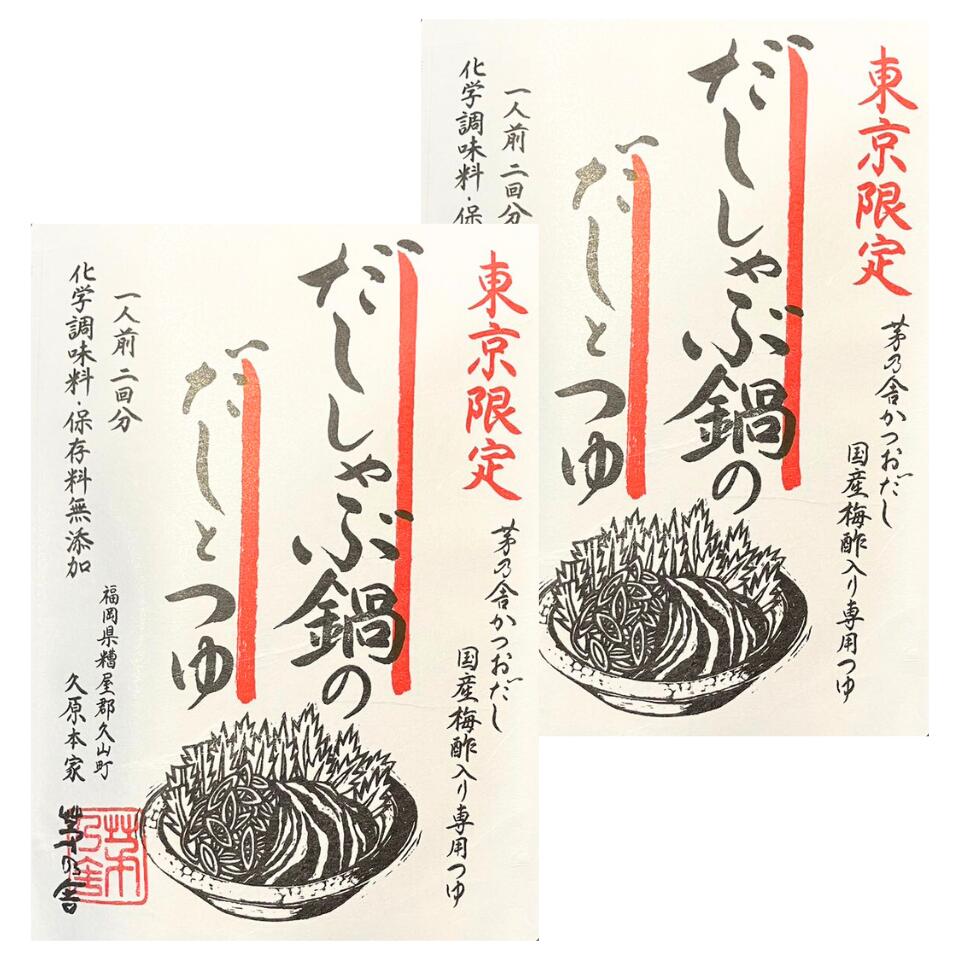 東京限定
茅乃舎かつおだし
国産梅酢入り専用つゆ
だししゃぶ鍋の
だしとつゆ
一人前 二回分
化学調味料・保
東京限定
茅乃舎かつおだし
国産梅酢入り専用つゆ
だししゃぶ鍋の
だしとつゆ
一人前 二回分
化学調味料・保存料無添加
福岡県糟屋郡久山町
久原本家
茅乃舎
茅乃舎